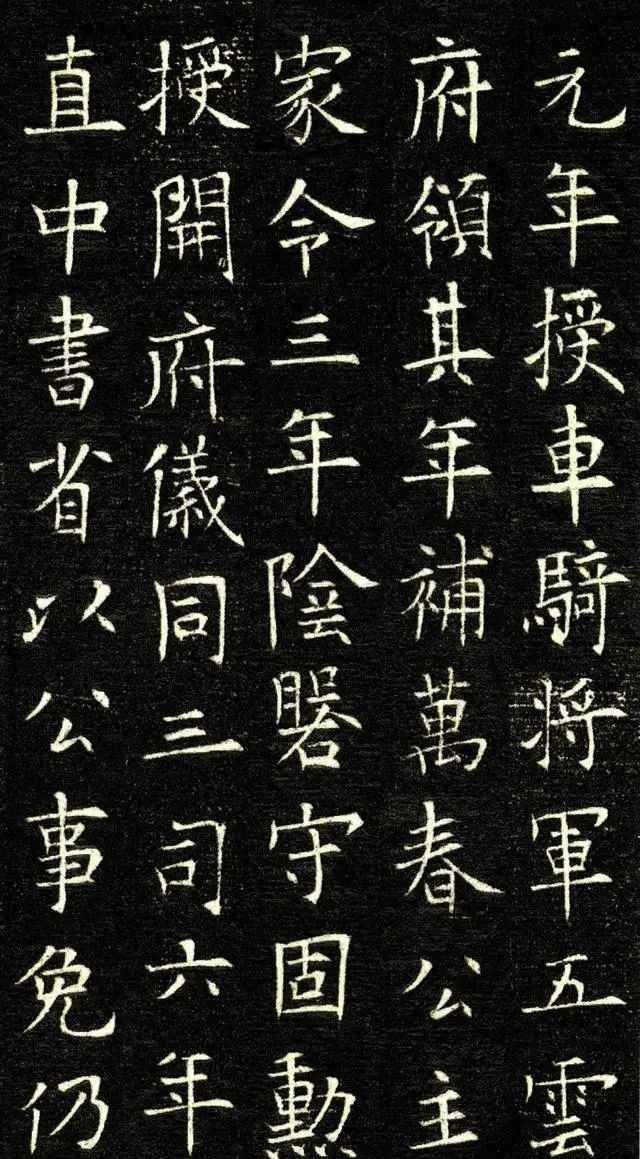 元年授車騎將軍五雲
府領其年補萬春公主
家令三年陰畧守固勲
授開府儀同三司六年
直中書省以公事免仍